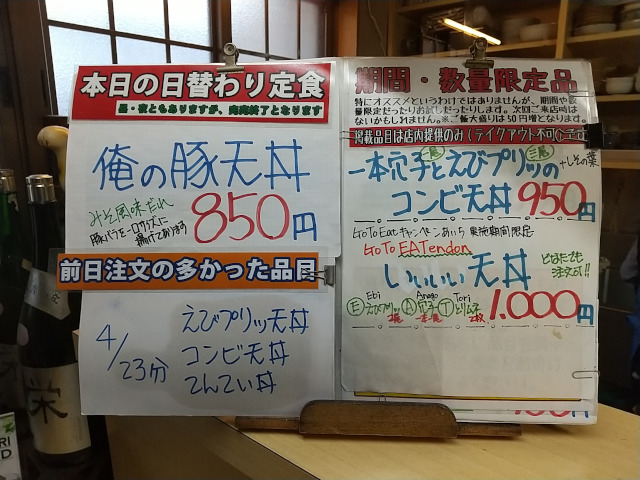 本日の日替わり定食
昼・夜ともありますが、完売終了となります
俺の豚天丼
みそ風味だれ
豚バラを一口サイズに
揚げてあります
850円
前日注文の多かった品目
4/23分
えびプリッツ天丼
コンビ天丼
てんてい丼
期間・数量限定品
特にオススメというわけではありませんが、期間や数
量限定だったりお試しだったりします。次回ご来店時は
ないかもしれません。※ご飯大盛りは50円増となります。
掲載品目は店内提供のみ(テイクアウト不可)
一本穴子とえびプリッツの
+しその葉
コンビ天丼 950円
GoToEatキャンペーンあいち 実施期間限定
GoTo EATendon
いいいい天丼
どなたでも
注文可!!
Ebi Anago Tori
Eえびプリッツ A穴子 Tとりムネ
2尾 一本 2枚
1.000円
栄